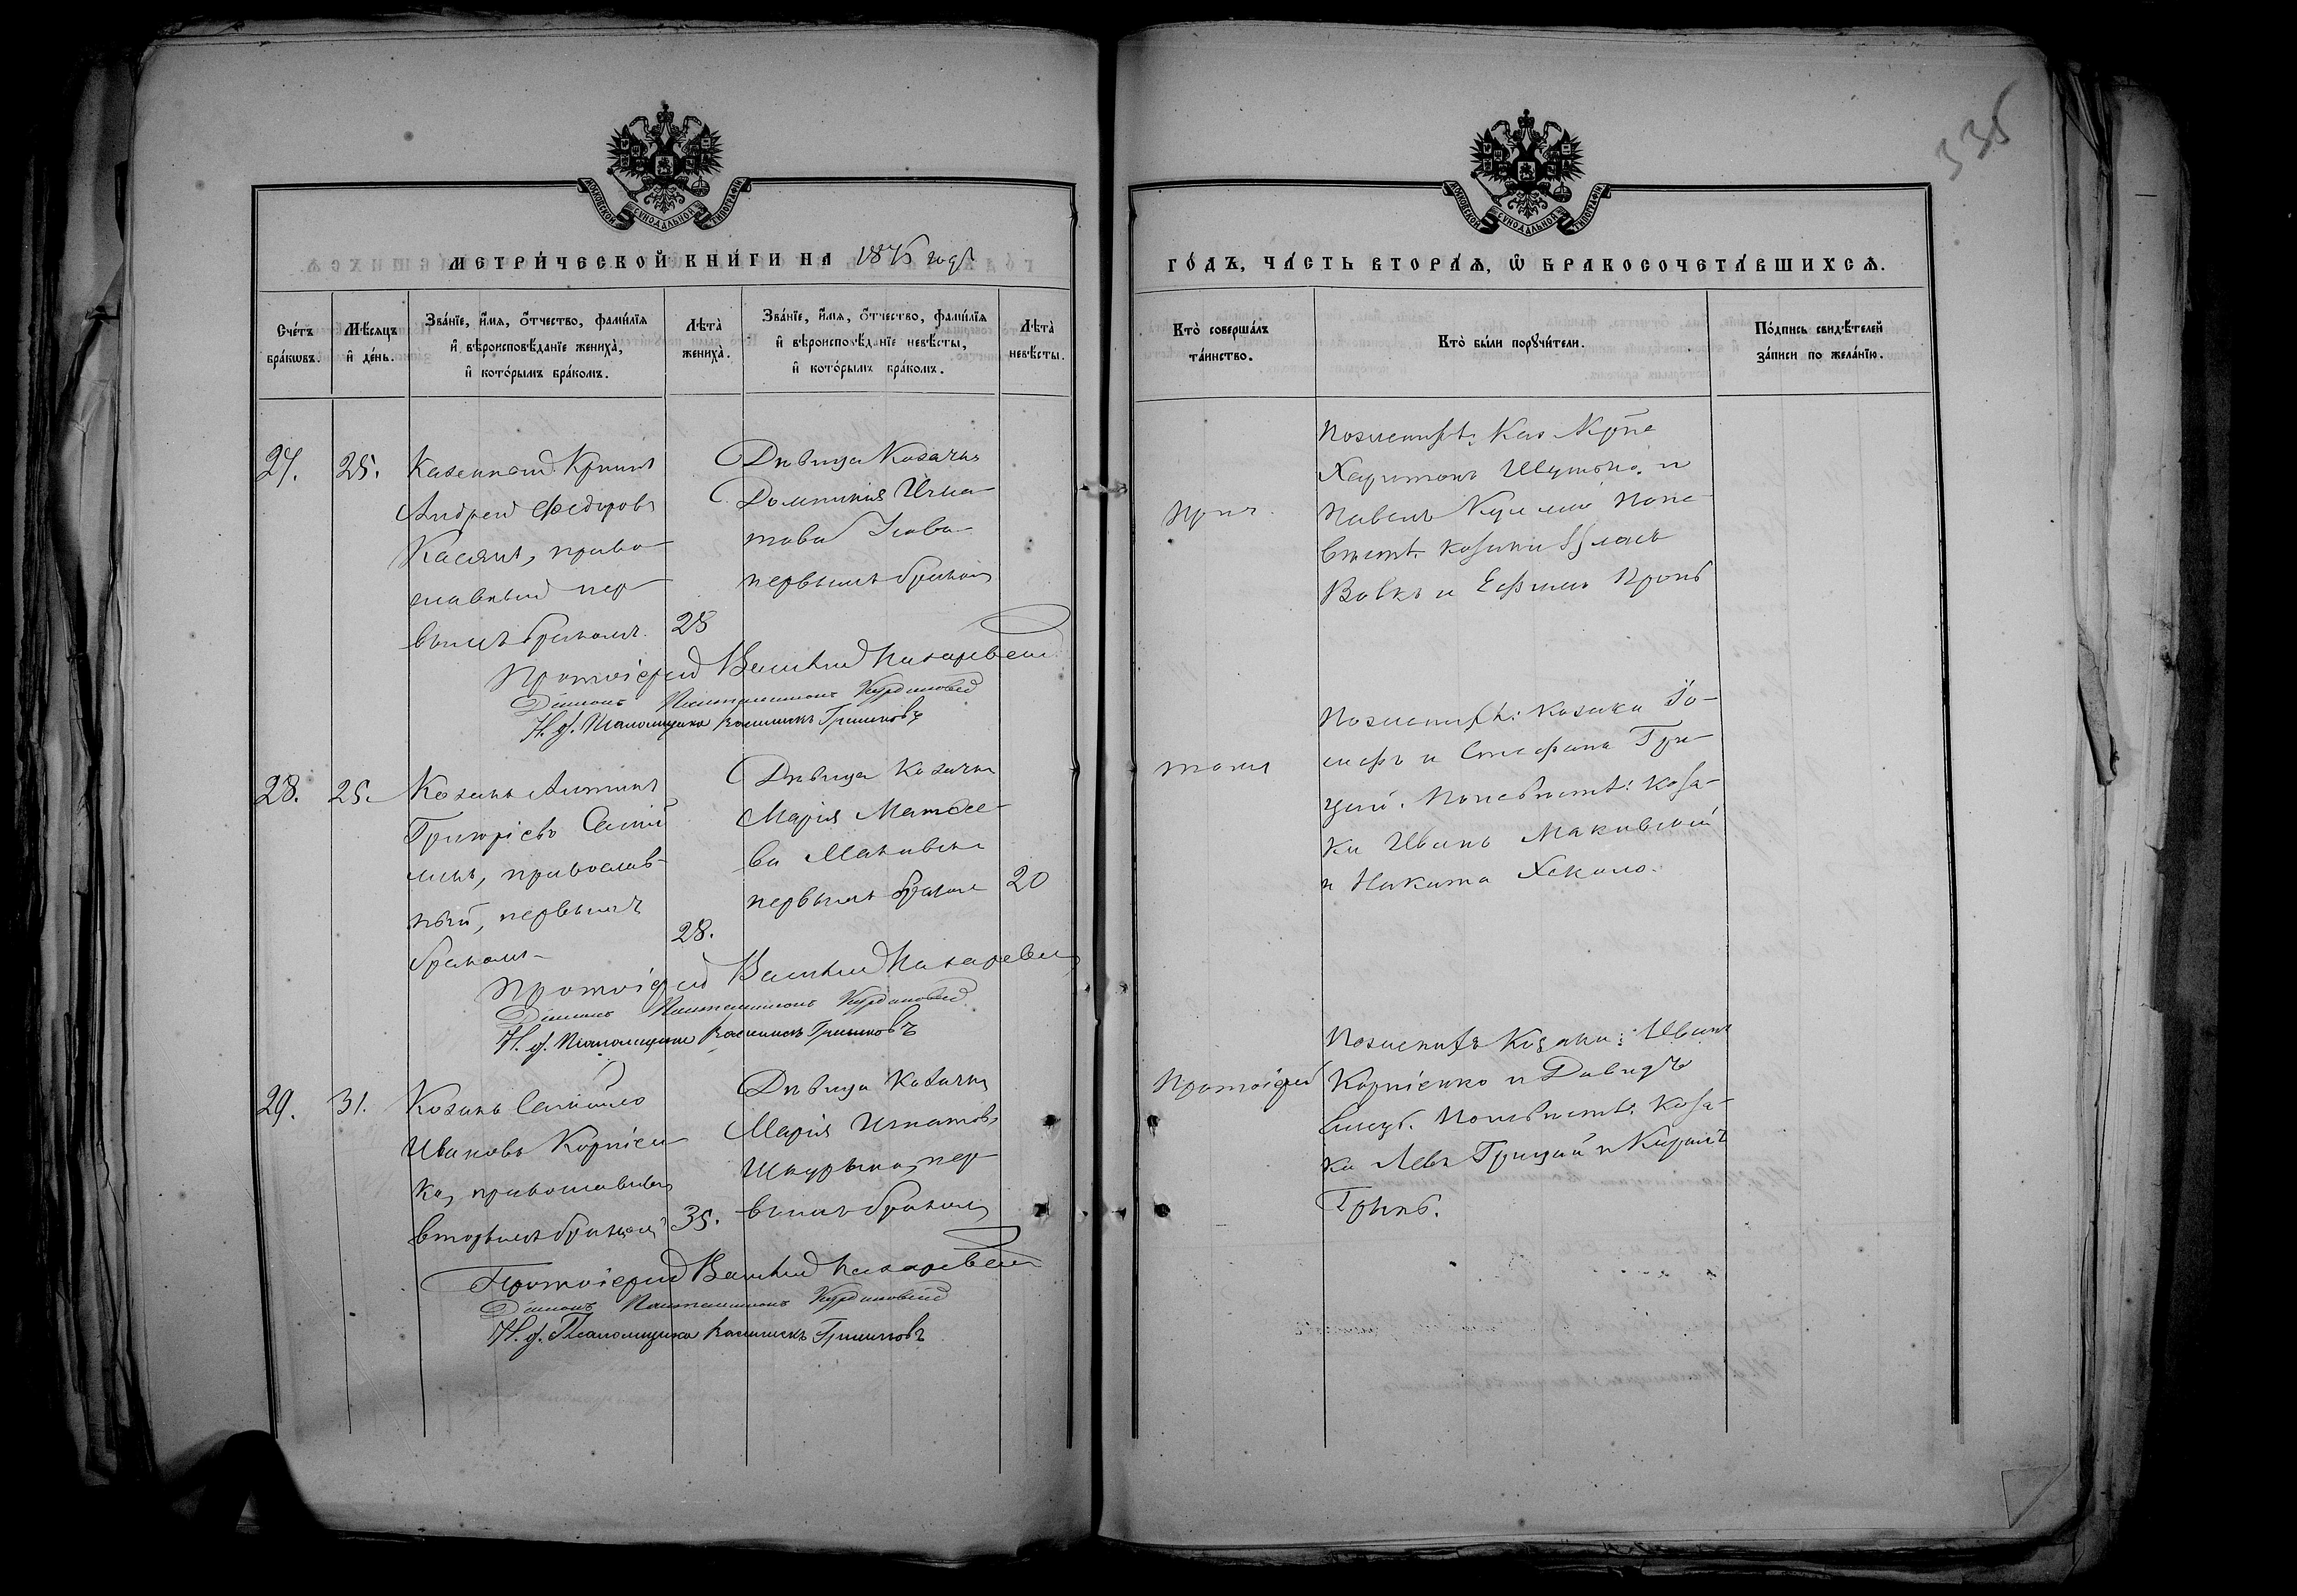 335
МОСКОВСКОЙ СѴНОДАЛЬНОЙ ТИПОГРАФІИ
МЕТРИ́ЧЕСКОЙ КНИ́ГИ НА 1875 годъ
Сче́тъ бра́кωвъ.
Мѣ́сяцъ и҆ де́нь.
Зва́нїе, и҆́мя, ѻ҆́тчество, фами́лїя
и҆ вѣроисповѣ́данїе жениха̀,
и҆ кото́рымъ бра́комъ.
Лѣта̀ жениха̀.
Зва́нїе, и҆́мя, ѻ҆́тчество, фами́лїя
и҆ вѣроисповѣ́данїе невѣ́сты,
и҆ кото́рымъ бра́комъ.
Лѣта̀ невѣ́сты.
27.
25.
Казенный Крише
Андрей Федоровъ
Касянъ, право-
славный пер-
вымъ бракомъ.
28
Дѣвица Козачка
Домникія Игна-
това
первымъ бракомъ
Протоіерей Василій Назаревскій
Діаконъ Пантелимонъ Курдиновскій
И. д. Псаломщика Каллиникъ Гришковъ
28.
25.
Козакъ Антонъ
Григоріевъ
православ-
ный, первымъ
бракомъ
28.
Дѣвица Козачка
Марія Матѳее-
ва Маковска
первымъ бракомъ
20
Протоіерей Василій Назаревскій
Діаконъ Пантелимонъ Курдиновскій
И. д. Псаломщика Каллиникъ Гришковъ
29.
31.
Козакъ Самойло
Ивановъ Корніен-
ко, православный
вторымъ бракомъ
35.
Дѣвица Козачка
Марія Игнатова
Шкурына, пер-
вымъ бракомъ
Протоіерей Василій Назаревскій
Діаконъ Пантелимонъ Курдиновскій
И. д. Псаломщика Каллиникъ Гришковъ
МОСКОВСКОЙ СѴНОДАЛЬНОЙ ТИПОГРАФІИ
ГО́ДЪ, ЧА́СТЬ ВТОРА́Я, Ѽ БРАКОСОЧЕТА́ВШИХСЯ.
Кто̀ соверша́лъ та́инство.
Кто̀ бы́ли порꙋчи́тели.
По́дпись свидѣ́телей за́писи по жела́нїю.
Поженихѣ: Каз
Харитонъ и
Павелъ По не-
вѣстѣ. козаки Власъ
Вовкъ и Ефимъ
Поженихѣ: козаки Іо-
сифъ и Стефанъ Гри-
цай. Поневѣстѣ: Коза-
ки Иванъ Маковскій
и Никита
Протоіерей
Поженихѣ Козаки: Иванъ
Корніенко и Давидъ
Поневѣстѣ: Коза-
ки Левъ Грицай и Кирилъ
Гринь.